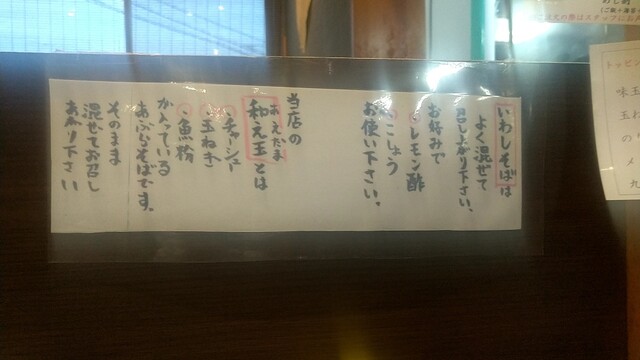 いわしそばは
よく混ぜて
召し上がり下さい。
お好みで
○レモン酢
○こしょう
お使い下さい。
当店の
あえだま
和え玉とは
○チャーシュー
○玉ねぎ
○魚粉
が入っている
あぶらそばです。
そのまま
混ぜてお召し
あがり下さい